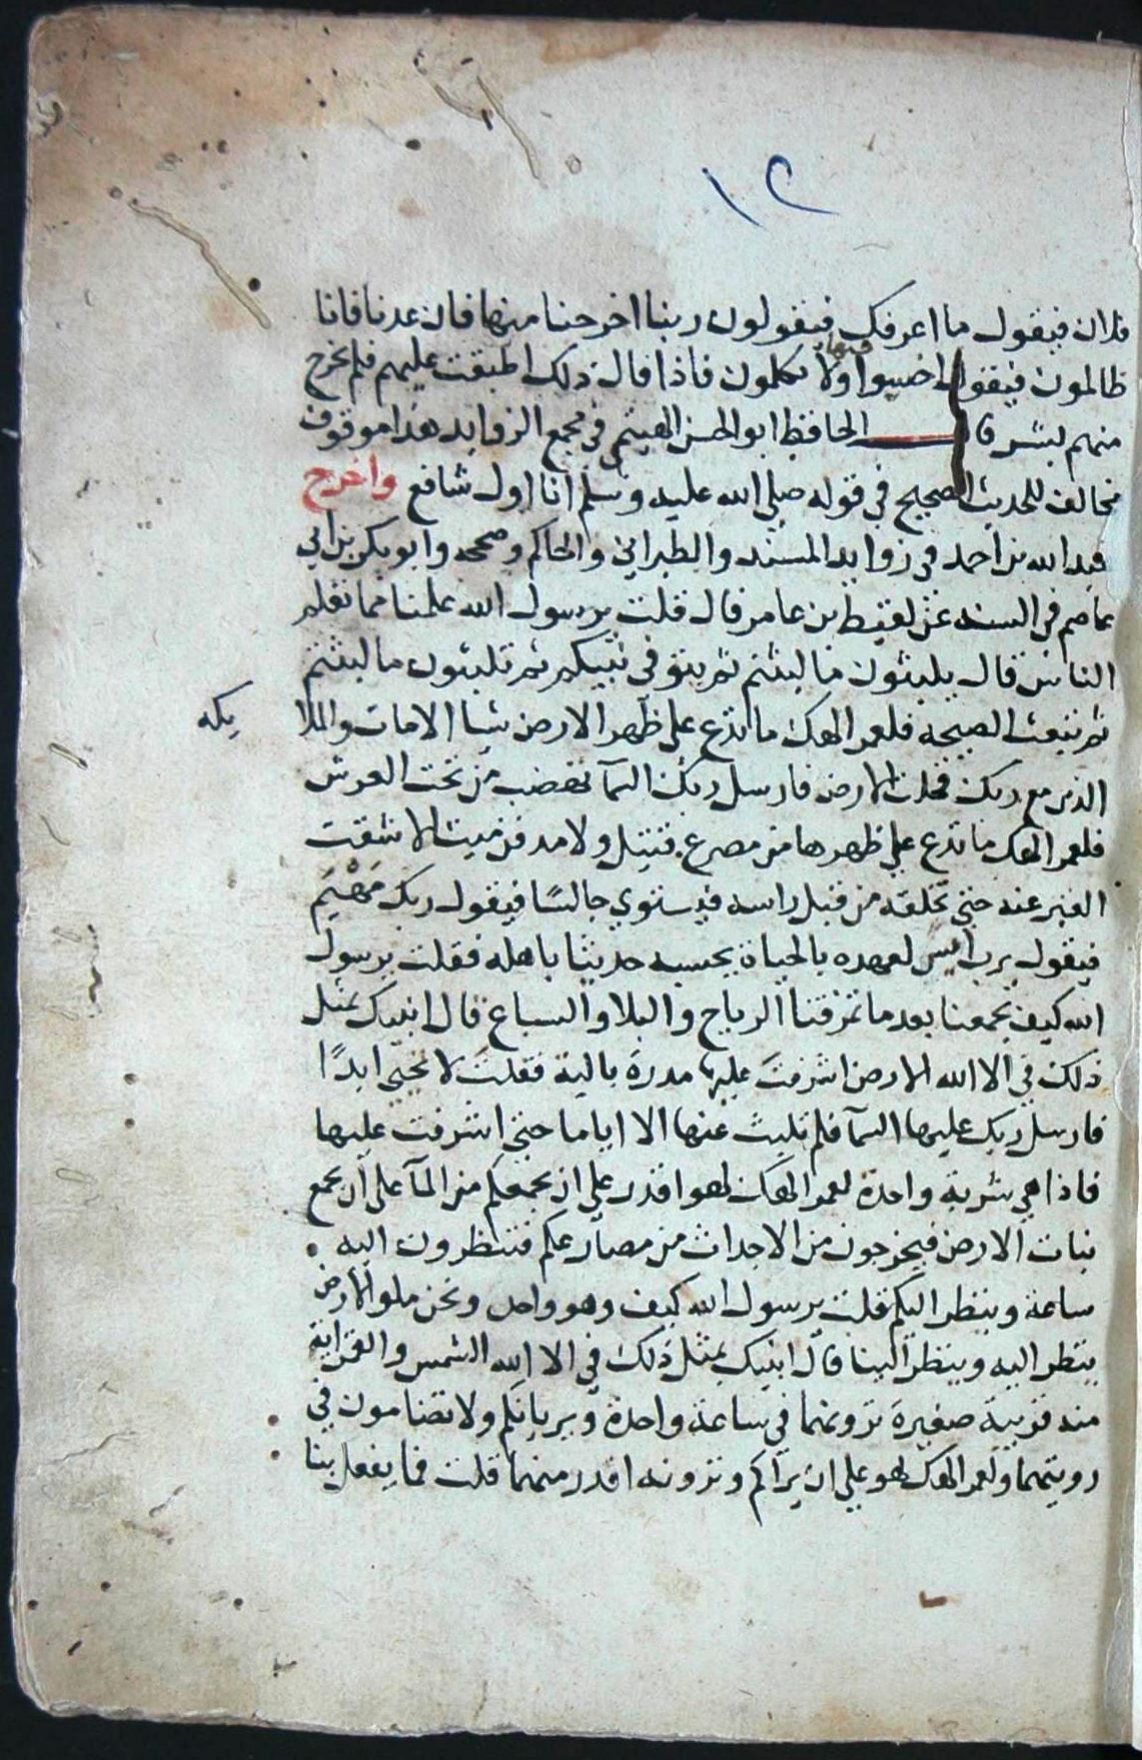 ١٢
فلان فيقول ما اعرفك فيقولون ربنا اخرجنا منها فان عدنا فانا
ظالمون فيقول اخسوا فيها ولا تكلمون فاذا قال ذلك اطبقت عليهم فلم يخرج
منهم بشر قال الحافظ ابو الحسن الهيثمي في مجمع الزوايد هذا موقوف
مخالف للحديث الصحيح في قوله صلى الله عليه وسلم انا اول شافع واخرج
عبد الله بن احمد في زوايد المسند والطبراني والحاكم وصححه وابو بكر بن ابي
عاصم في السنه عن لقيط بن عامر قال قلت يرسول الله علمنا مما تعلم
الناس قال يلبثون ما لبثتم ثم يتوفى نبيكم ثم تلبثون ما لبثتم
ثم تبعث الصيحه فلعمر الهك ما تدع على ظهر الارض شيا الا مات والملا
يكه
الذين مع ربك فخلت الارض فارسل ربك السمآ تهضب من تحت العرش
فلعمر الهك ما تدع على ظهرها من مصرع قتيل ولا مدفن ميت الا شقت
القبر عنه حتى تخلقه من قبل راسه فيستوي جالسًا فيقول ربك مَهْيَم
فيقول يرب امس لعهده بالحياة يحسبه حديثا باهله فقلت يرسول
الله كيف يجمعنا بعد ما تمزقنا الرياح والبلا والسباع قال انبيك بمثل
ذلك في الا الله الارض اشرفت عليها مدرة بالية فقلت لا تحيى ابدًا
فارسل ربك عليها السمآ فلم تلبث عنها الا اياما حتى اشرفت عليها
فاذا هي شربة واحدة لعمر الهك لهو اقدر على ان يجمعكم من المآ على ان يجمع
نبات الارض فيخرجون من الاجداث من مصارعكم فتنظرون اليه
ساعة وينظر اليكم قلت يرسول الله كيف وهو واحد ونحن ملو الارض
ينظر اليه وينظر الينا قال انبيك بمثل ذلك في الا الله الشمس والقمر اية
منه قريبة صغيرة ترونهما في ساعة واحدة ويريانكم ولا تضامون في
رويتهما ولعمر الهك لهو على ان يراكم وترونه اقدر منهما قلت فما يفعل بنا